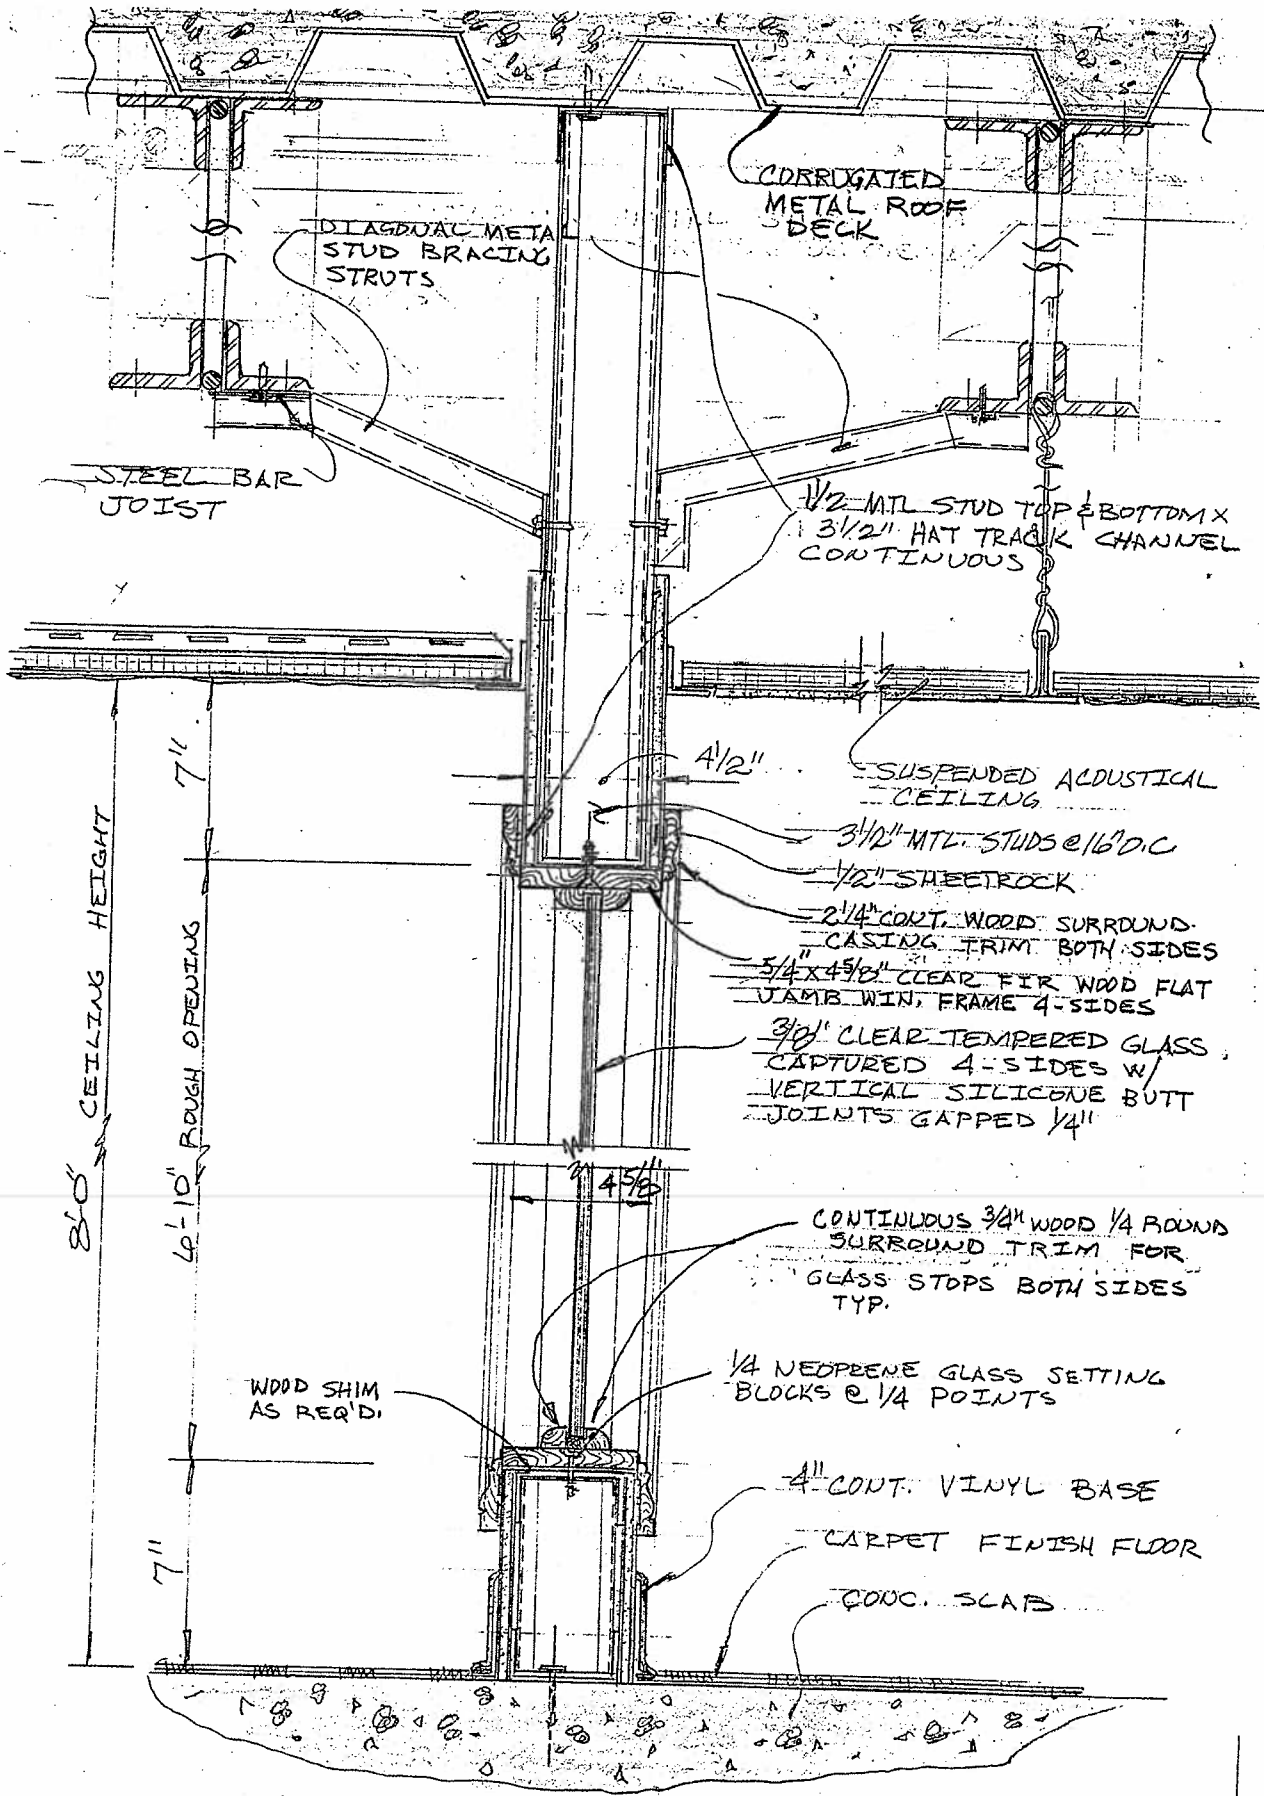 CORRUGATED
METAL ROOF
DECK
DIAGONAL META
STUD BRACING
STRUTS
STEEL BAR
JOIST
1 1/2 MTL STUD TOP & BOTTOM X
3 1/2" HAT TRACK CHANNEL
CONTINUOUS
7"
4 1/2"
SUSPENDED ACOUSTICAL
CEILING
3 1/2" MTL. STUDS @ 16" O.C
1/2" SHEETROCK
2 1/4" CONT. WOOD SURROUND
CASING TRIM BOTH SIDES
5/4" X 4 5/8" CLEAR FIR WOOD FLAT
JAMB WIN. FRAME 4-SIDES
3/8" CLEAR TEMPERED GLASS
CAPTURED 4-SIDES W/
VERTICAL SILICONE BUTT
JOINTS GAPPED 1/4"
8'-0" CEILING HEIGHT
6'-10" ROUGH OPENING
4 5/8"
CONTINUOUS 3/4" WOOD 1/4 ROUND
SURROUND TRIM FOR
GLASS STOPS BOTH SIDES
TYP.
WOOD SHIM
AS REQ'D.
1/4 NEOPRENE GLASS SETTING
BLOCKS @ 1/4 POINTS
4" CONT. VINYL BASE
7"
CARPET FINISH FLOOR
CONC. SLAB